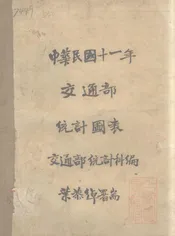 中華民國十一年
交通部
統計圖表
交通部統計科編
葉恭綽署耑